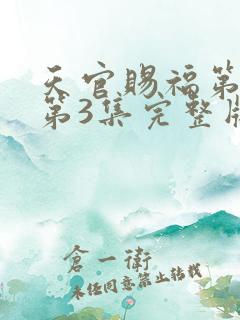 天官赐福第
第3集完整版
倉一衛
未任同意禁止转载